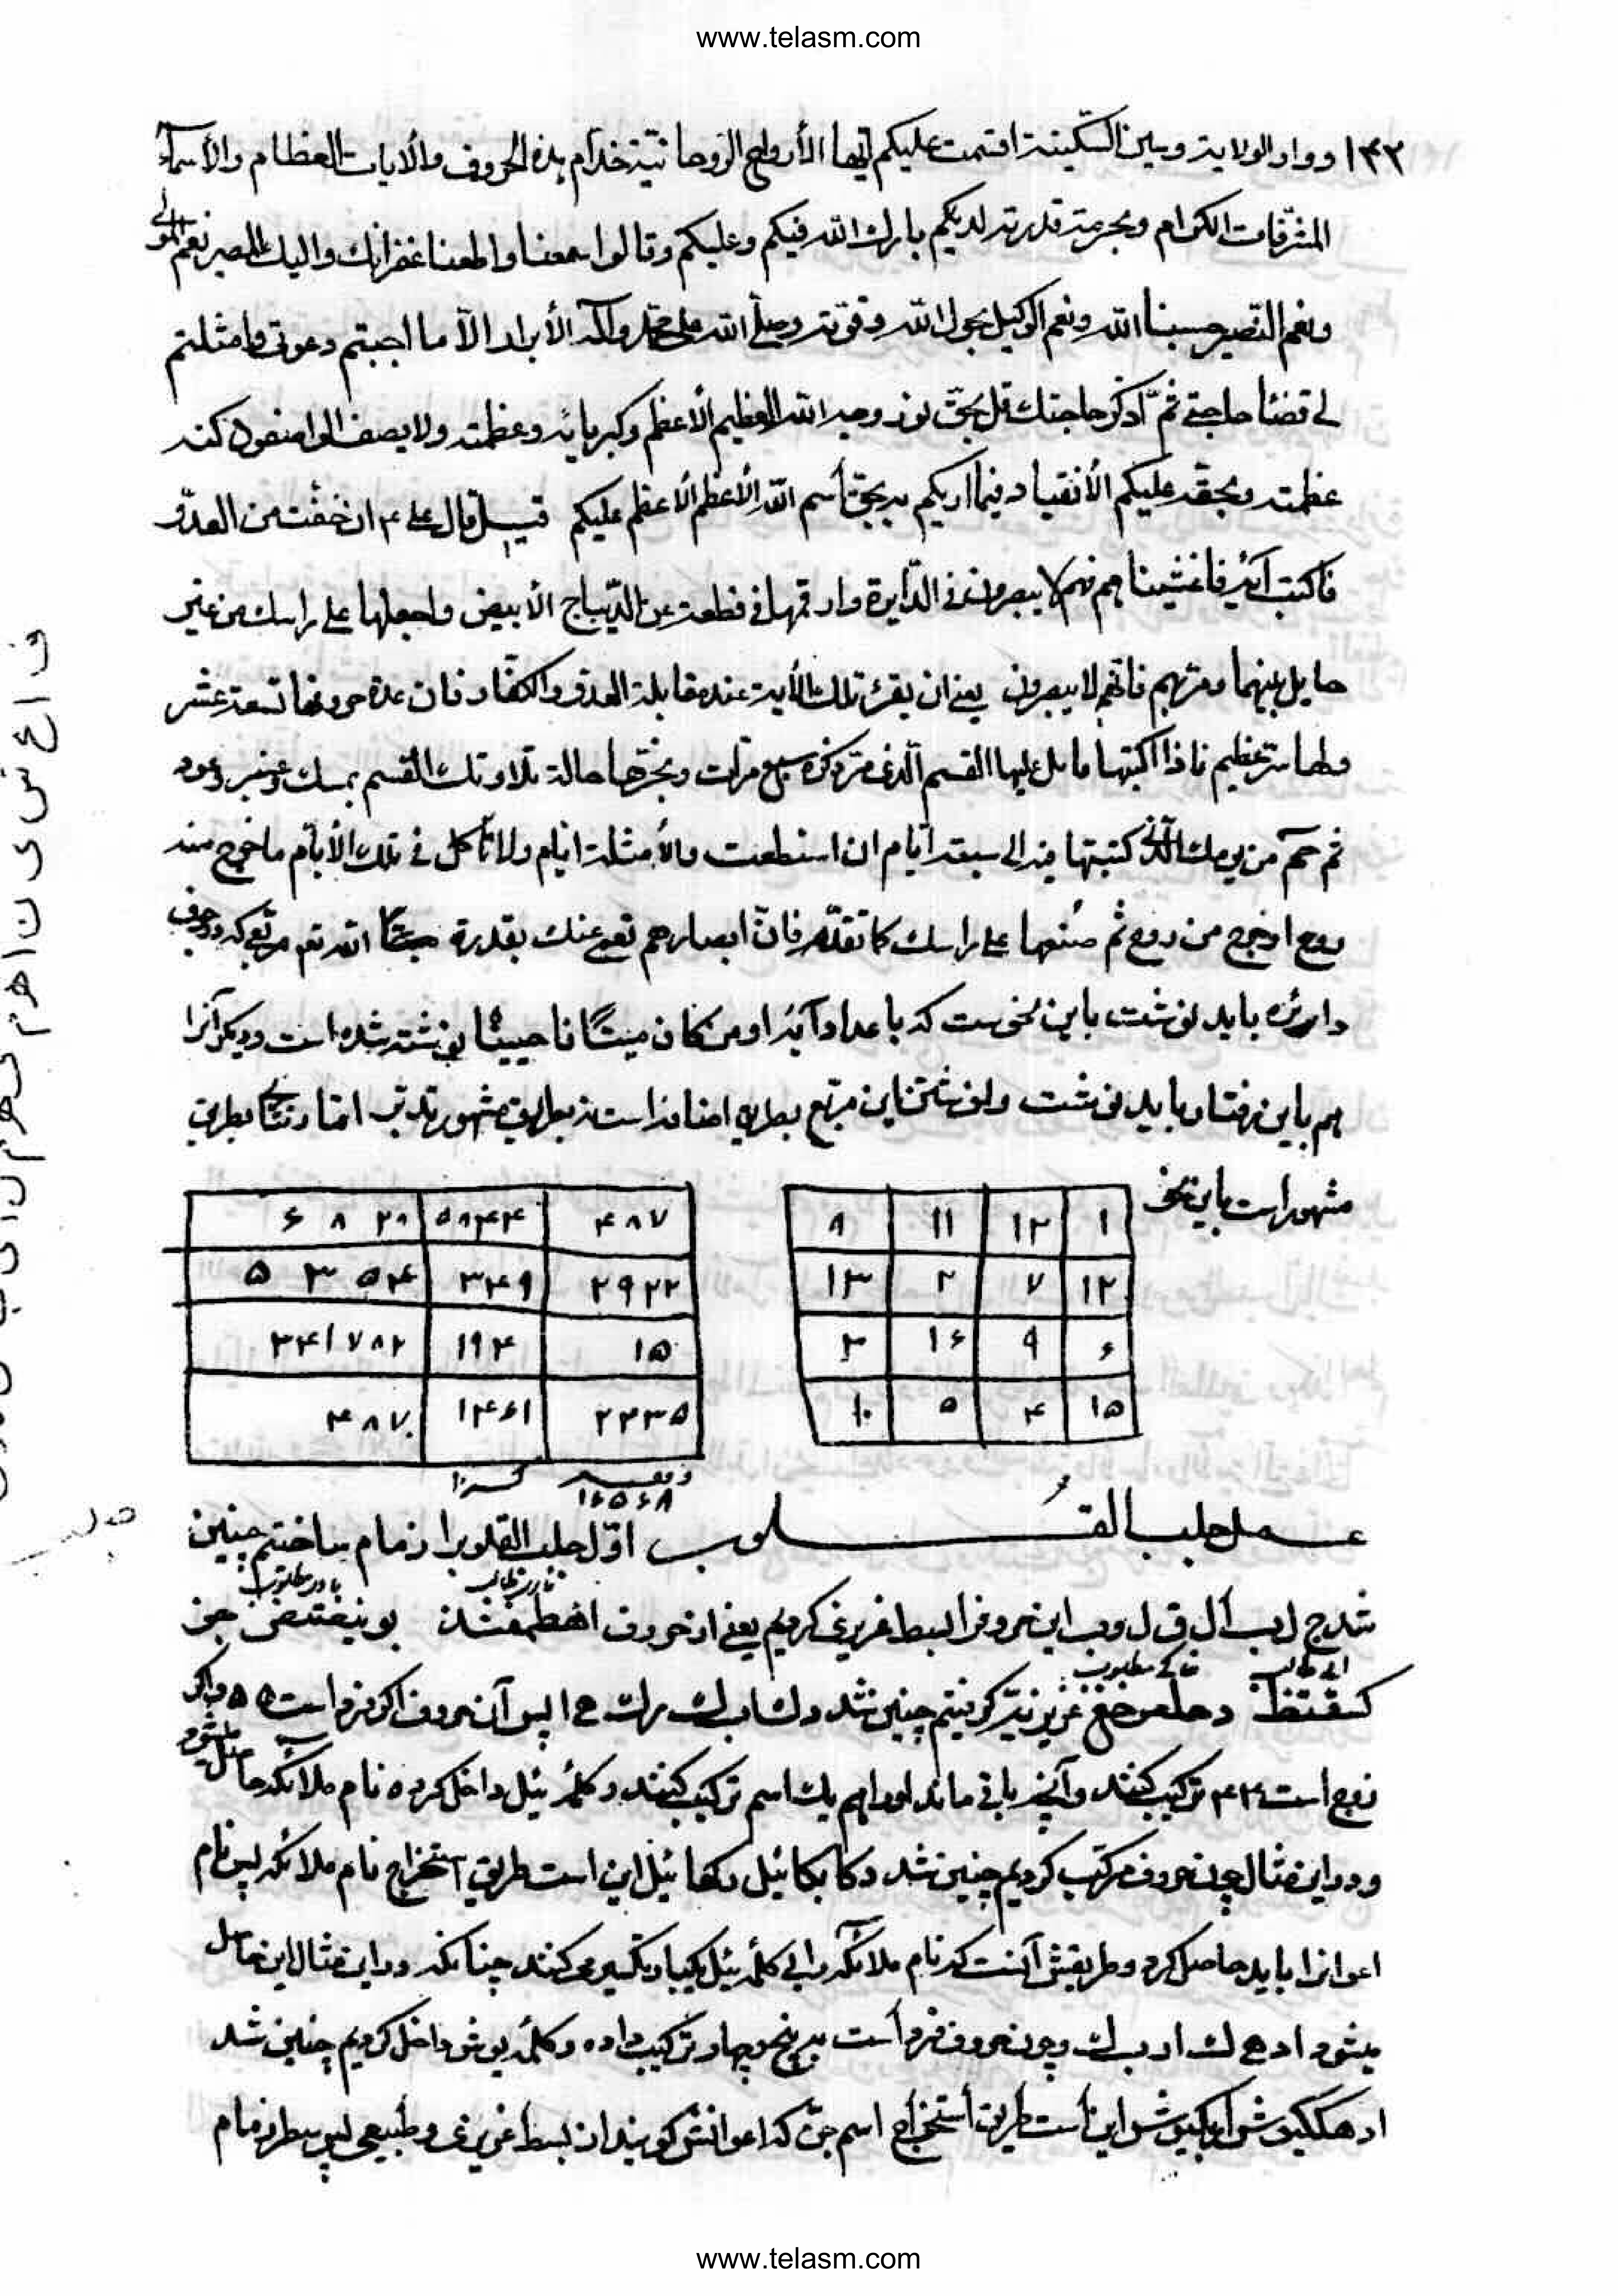 www.telasm.com
۱۴۳ و واو الولاية وسين السّكينة اقسمت عليكم ايّها الأرواح الرّوحانيّة خدّام بهذه الحروف والآيات العظام والأسماء
المشرّفات الكرام وبحرمة قدرته لديكم بارك الله فيكم وعليكم وقالوا سمعنا واطعنا غفرانك واليك المصير نعم المولى
ونعم النّصير حسبنا الله ونعم الوكيل بحول الله وقوّته وصلّى الله على محمّد وآله الأبرار الّا ما اجبتم دعوتي وامثلتم
لي قضاء حاجتي ثمّ اذكر حاجتك قل بحقّ نور وجه الله العظيم الأعظم وكبريائه وعظمته ولا يصف الواصفون كنه
عظمته وبحقّه عليكم الأنقياد فيما اريكم به بحقّ اسم الله الأعظم الأعظم عليكم قيل قال علي ع ان خفت من العدوّ
فاكتب آية فاغشيناهم فهم لا يبصرون في الدّايرة وارقمها في قطعة من الدّيباج الأبيض واجعلها على راسك من غير
حايل بينهما ومرّ بهم فانّهم لا يبصرون يعني ان يقرء تلك الآية عند مقابلة العدوّ والكفّار فان عدة حروفها تسعة عشر
ولها سرّ عظيم فاذا اكتبتها فاتل عليها القسم الّذي مرّ ذكره سبع مرّات وبخّرها حالة تلاوتك القسم بمسك وعنبر وعود
ثم صم من يومك الّذي كتبتها فيه الى سبعة ايّام ان استطعت والّا ثلثة ايّام ولا تأكل في تلك الأيّام ما خرج منه
روح او خرج من روح ثم ضعها على راسك كما تقدّم فانّ ابصارهم تعمي عنك بقدرة الله تعم مربّعي كه در حرف
دايره بايد نوشت باين نحوست كه با عداد آية اومن كان ميتًا فاحييناه نوشته شده است وديكر آنرا
هم باين رفتار بايد نوشت ونوشتن اين مربّع بطريق اضافه است نه بطريق مشهور ترتيب امّا رفتار بطريق
مشهور است باين نحو
۱ ۱۴ ۱۱ ۸
۱۲ ۷ ۲ ۱۳
۶ ۹ ۱۶ ۳
۱۵ ۴ ۵ ۱۰
۴۸۷ ۵۸۴۴ ۲۸ ۸ ۶
۲۹۲۲ ۳۴۹ ۵۴ ۳ ۵
۱۵ ۱۹۴ ۳۴۱۷۸۲
۲۲۳۵ ۱۴۶۱ ۴۸۷
۱۶۵۶۸
عمل جلب القلوب اوّل جلب القلوب را زمام ساختيم چنين
شد ج ل ب ا ل ق ل و ب اين حروف را بسط غريزي كرديم يعني از حروف اهطمفشذ بوينصتض جز
كسقثظ دحلعرخغ غريزيّه كرفتيم چنين شد د ك ا ب ك ر ك ه ا پس آن حروف اكر فرد است ۵ ۵ واكر
زوج است ۴ ۴ تركيب كنند وآنچه باقي ماند اورا هم يك اسم تركيب كنند وكلمه ئيل داخل كرده نام ملائكه حاصل ميشود
ودر اين مثال چون حروف مركّب كرديم چنين شد دكابكائيل ركهائيل اين است طريق استخراج نام ملائكه پس نام
اعوانرا بايد حاصل كرد وطريقش آنست كه نام ملائكه را بي كلمه ئيل يكبار تكسير ميكنند چنانكه در اين مثال اين حاصل
ميشود ا د ه ك ك ا ر ب ك وچون حروف فرد است به پنج وچهار تركيب داده وكلمه يوش داخل كرديم چنين شد
ادهككيوش اربكيوش اين است طريق استخراج اسم جنّ كه اعوانش كويند از بسط غريزي وطبيعي پس سطر زمام
www.telasm.com